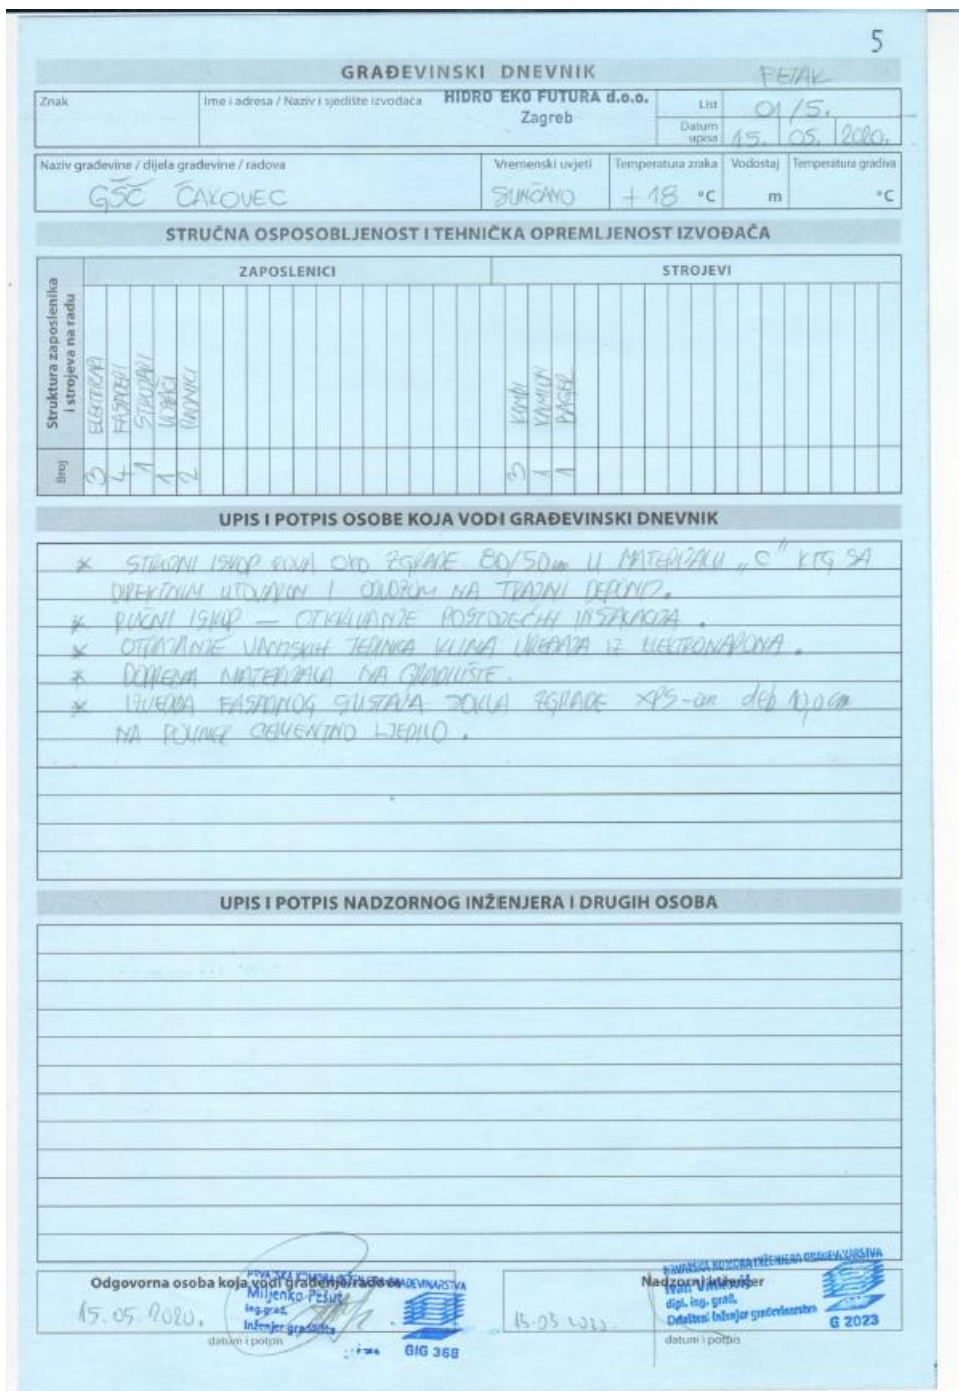 5
GRAĐEVINSKI DNEVNIK
PETAK
Znak
Ime i adresa / Naziv i sjedište izvođača
HIDRO EKO FUTURA d.o.o.
Zagreb
List
01/5.
Datum upisa
15. 05. 2020.
Naziv građevine / dijela građevine / radova
GŠČ ČAKOVEC
Vremenski uvjeti
SUNČANO
Temperatura zraka
+ 18 °C
Vodostaj
m
Temperatura gradiva
°C
STRUČNA OSPOSOBLJENOST I TEHNIČKA OPREMLJENOST IZVOĐAČA
Struktura zaposlenika i strojeva na radu
ZAPOSLENICI
STROJEVI
ELEKTRIČARI
FASADERI
STROJARI
VOZAČI
RADNICI
KOMBI
KAMION
BAGER
Broj
3 4 1 1 2 3 1 1
UPIS I POTPIS OSOBE KOJA VODI GRAĐEVINSKI DNEVNIK
* STROJNI ISKOP ROVA OKO ZGRADE 80/50cm U MATERIJALU „C" KTG SA
DIREKTNIM UTOVAROM I ODVOZOM NA TRAJNI DEPONIJ.
* RUČNI ISKOP — OTKRIVANJE POSTOJEĆIH INSTALACIJA.
* VANJSKIH JEDINICA KLIMA UREĐAJA IZ ELEKTRONAPONA.
* DOPREMA MATERIJALA NA GRADILIŠTE.
* IZVEDBA FASADNOG SUSTAVA SOKLA ZGRADE XPS-om deb 10,0 cm
NA POLIMER CEMENTNO LJEPILO.
UPIS I POTPIS NADZORNOG INŽENJERA I DRUGIH OSOBA
Odgovorna osoba koja vodi građenje/radove
HRVATSKA KOMORA INŽENJERA GRAĐEVINARSTVA
Miljenko Pešut
ing.građ.
Inženjer gradilišta
GIG 368
15.05.2020.
datum i potpis
Nadzorni inženjer
HRVATSKA KOMORA INŽENJERA GRAĐEVINARSTVA
Ivan
dipl. ing. građ.
Ovlašteni inženjer građevinarstva
G 2023
15.05.2020.
datum i potpis